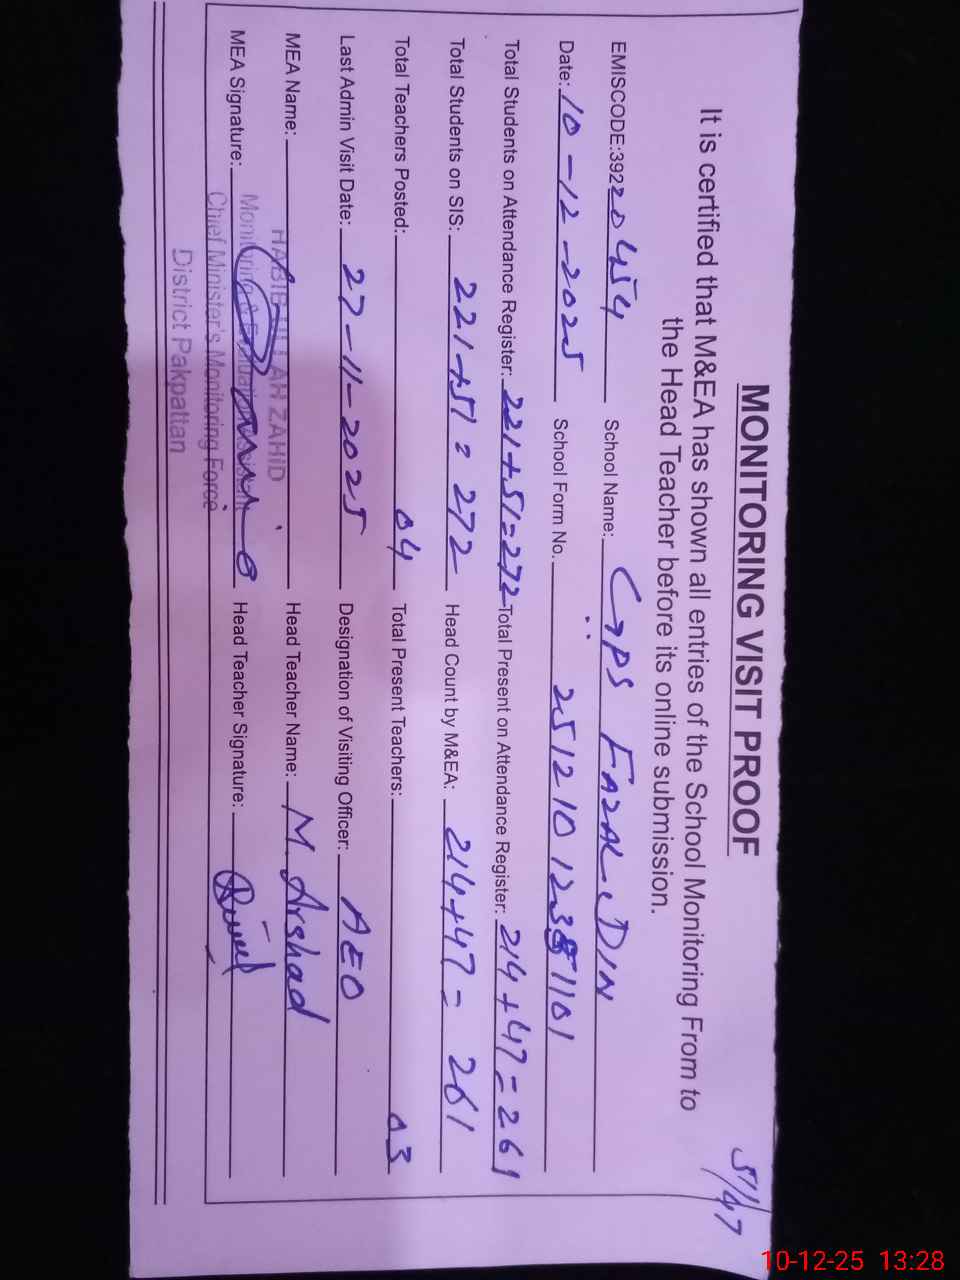 51/47
MONITORING VISIT PROOF
It is certified that M&EA has shown all entries of the School Monitoring From to
the Head Teacher before its online submission.
EMISCODE:39220454 School Name: GPS FAZAL DIN
Date: 10-12-2025 School Form No.
Total Students on Attendance Register: 221+51=272 Total Present on Attendance Register: 214+47=261
Total Students on SIS: 221+51=272 Head Count by M&EA: 214+47=261
Total Teachers Posted: 04 Total Present Teachers: 03
Last Admin Visit Date: 27-11-2025 Designation of Visiting Officer: AEO
MEA Name: HABIB ULLAH ZAHID Head Teacher Name: M. Arshad
MEA Signature: Head Teacher Signature:
Monitoring & Evaluation Assistant
Chief Minister's Monitoring Force
District Pakpattan
10-12-25 13:28